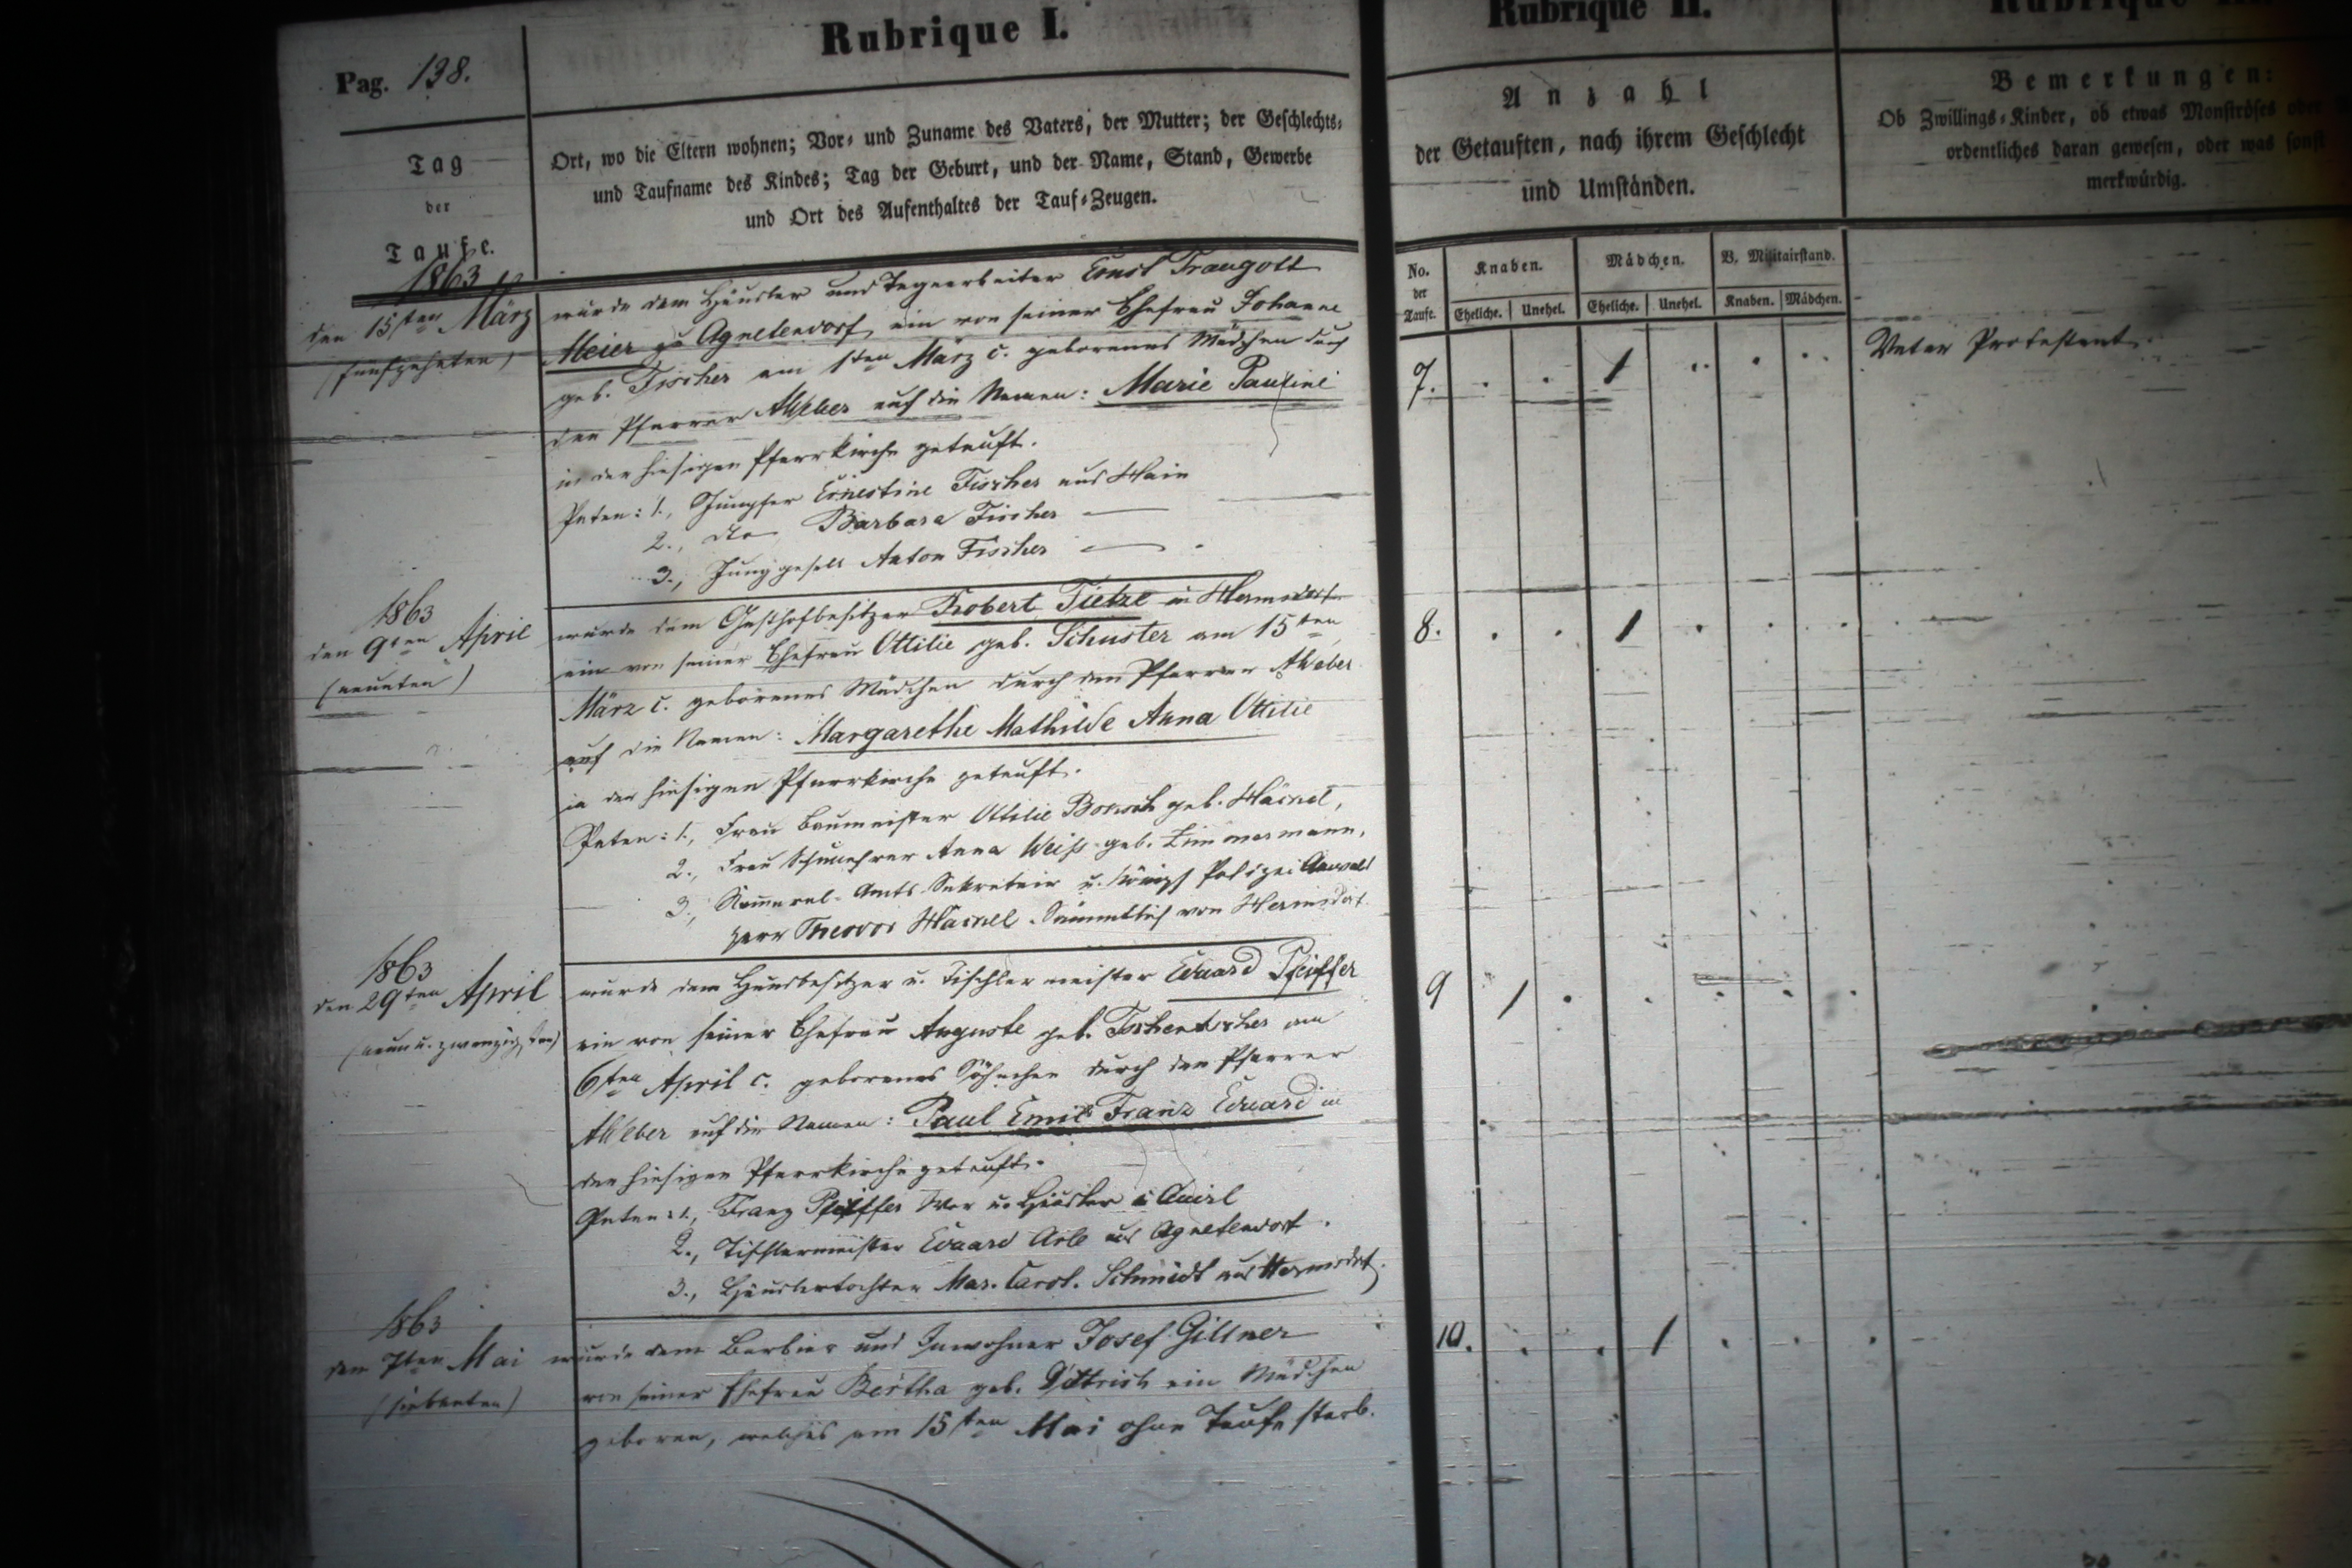 Pag. 138.
Rubrique I.
Rubrique II.
Tag
der
Taufe.
Ort, wo die Eltern wohnen; Vor- und Zuname des Vaters, der Mutter; der Geschlechts-
und Taufname des Kindes; Tag der Geburt, und der Name, Stand, Gewerbe
und Ort des Aufenthaltes der Tauf-Zeugen.
Anzahl
der Getauften, nach ihrem Geschlecht
und Umständen.
Bemerkungen:
Ob Zwillings-Kinder, ob etwas Monströses oder
ordentliches daran gewesen, oder was sonst
merkwürdig.
No. der Taufe.
Knaben.
Mädchen.
V. Militairstand.
Eheliche. Unehel. Eheliche. Unehel. Knaben. Mädchen.
1863
den 15ten März
(fünfzehnten)
wurde dem Häusler und Tagearbeiter Ernst Traugott
Meier zu Agnetendorf, ein von seiner Ehefrau Johanne
geb. Fischer am 1ten März c. geborenes Mädchen durch
den Pfarrer AWeber auf die Namen: Marie Pauline
in der hiesigen Pfarrkirche getauft.
Paten: 1., Jungfer Ernestine Fischer aus Hain
2., dto Barbara Fischer —
3., Junggesell Anton Fischer — .
7. . . 1 . . .
Vater Protestant.
1863
den 9ten April
(neunten)
wurde dem Gasthofbesitzer Robert Tietze in Hermsdorf
ein von seiner Ehefrau Ottilie geb. Schuster am 15ten
März c. geborenes Mädchen durch den Pfarrer AWeber
auf die Namen: Margarethe Mathilde Anna Ottilie
in der hiesigen Pfarrkirche getauft.
Paten: 1., Frau Baumeister Ottilie geb. Hainel,
2., Frau Anna Weiß geb. Zimmermann,
3., Kameral-Amts-Sekretair u. Königl Polizei Anwalt
Herr Theodor Hainel. Sämmtlich von Hermsdorf.
8. . . 1 . . .
1863
den 29ten April
(neun u. zwanzigsten)
wurde dem Hausbesitzer u. Tischlermeister Eduard Pfeiffer
ein von seiner Ehefrau Auguste geb. Tschentscher am
6ten April c. geborenes Söhnchen durch den Pfarrer
AWeber auf die Namen: Paul Emil Franz Eduard in
der hiesigen Pfarrkirche getauft.
Paten: 1., Franz Pfeiffer u. Häusler
2., Tischlermeister Eduard aus Agnetendorf.
3., Häuslertochter Mar. Carol. Schmidt aus Hermsdorf.
9 1 . . . . .
1863
den 7ten Mai
(siebenten)
wurde dem Barbier und Inwohner Josef Gillner
von seiner Ehefrau Bertha geb. Dittrich ein Mädchen
geboren, welches am 15ten Mai ohne Taufe starb.
10. . . 1 . . .